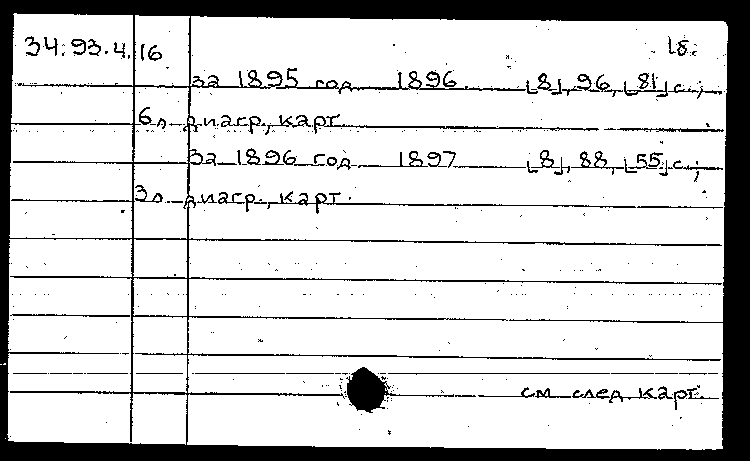 34.93.4.16 18.
за 1895 год 1896. [8], 96, [81] с.;
6 л диагр., карт.
за 1896 год 1897 [8], 88, [55] с.;
3 л диагр., карт.
см след. карт.